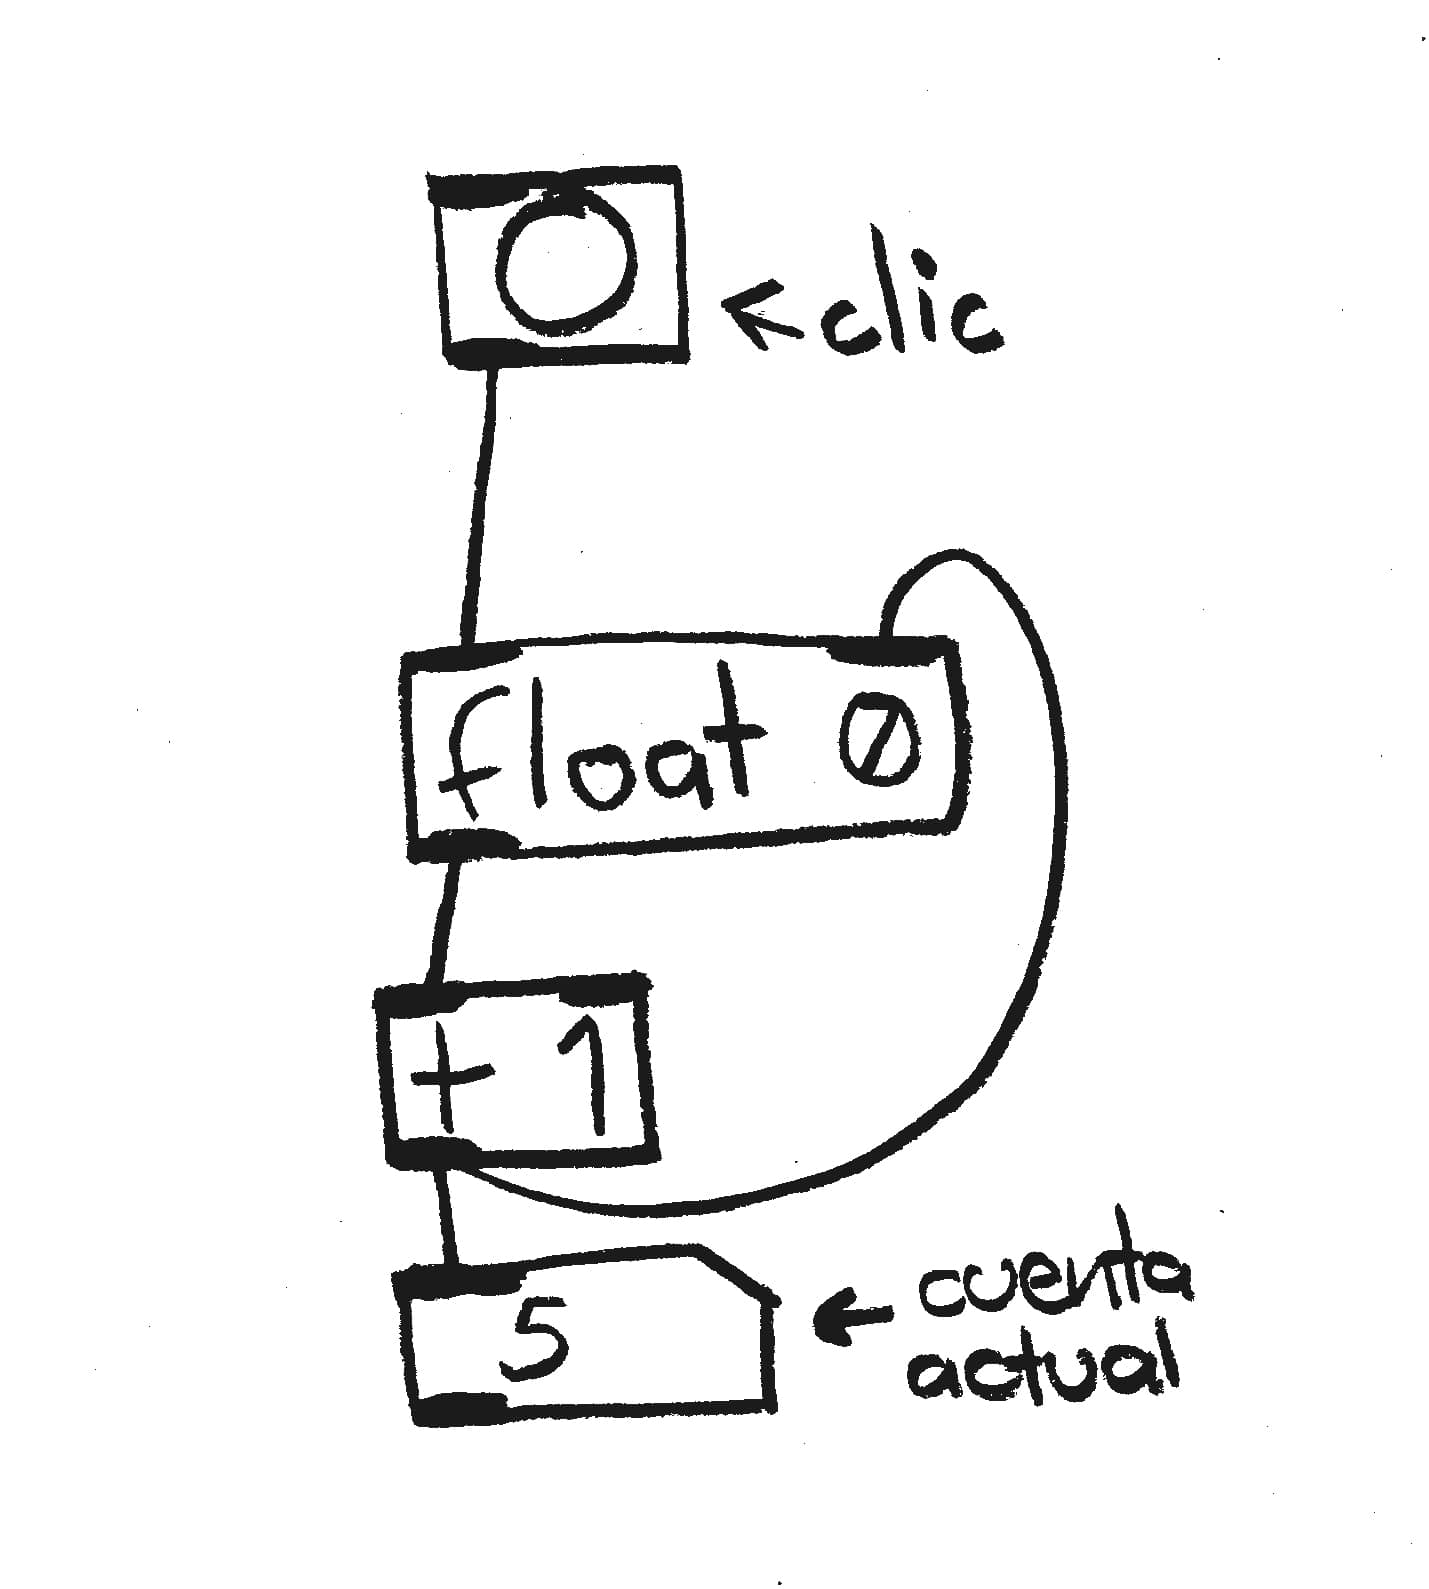 clic
float 0
+ 1
5
cuenta
actual